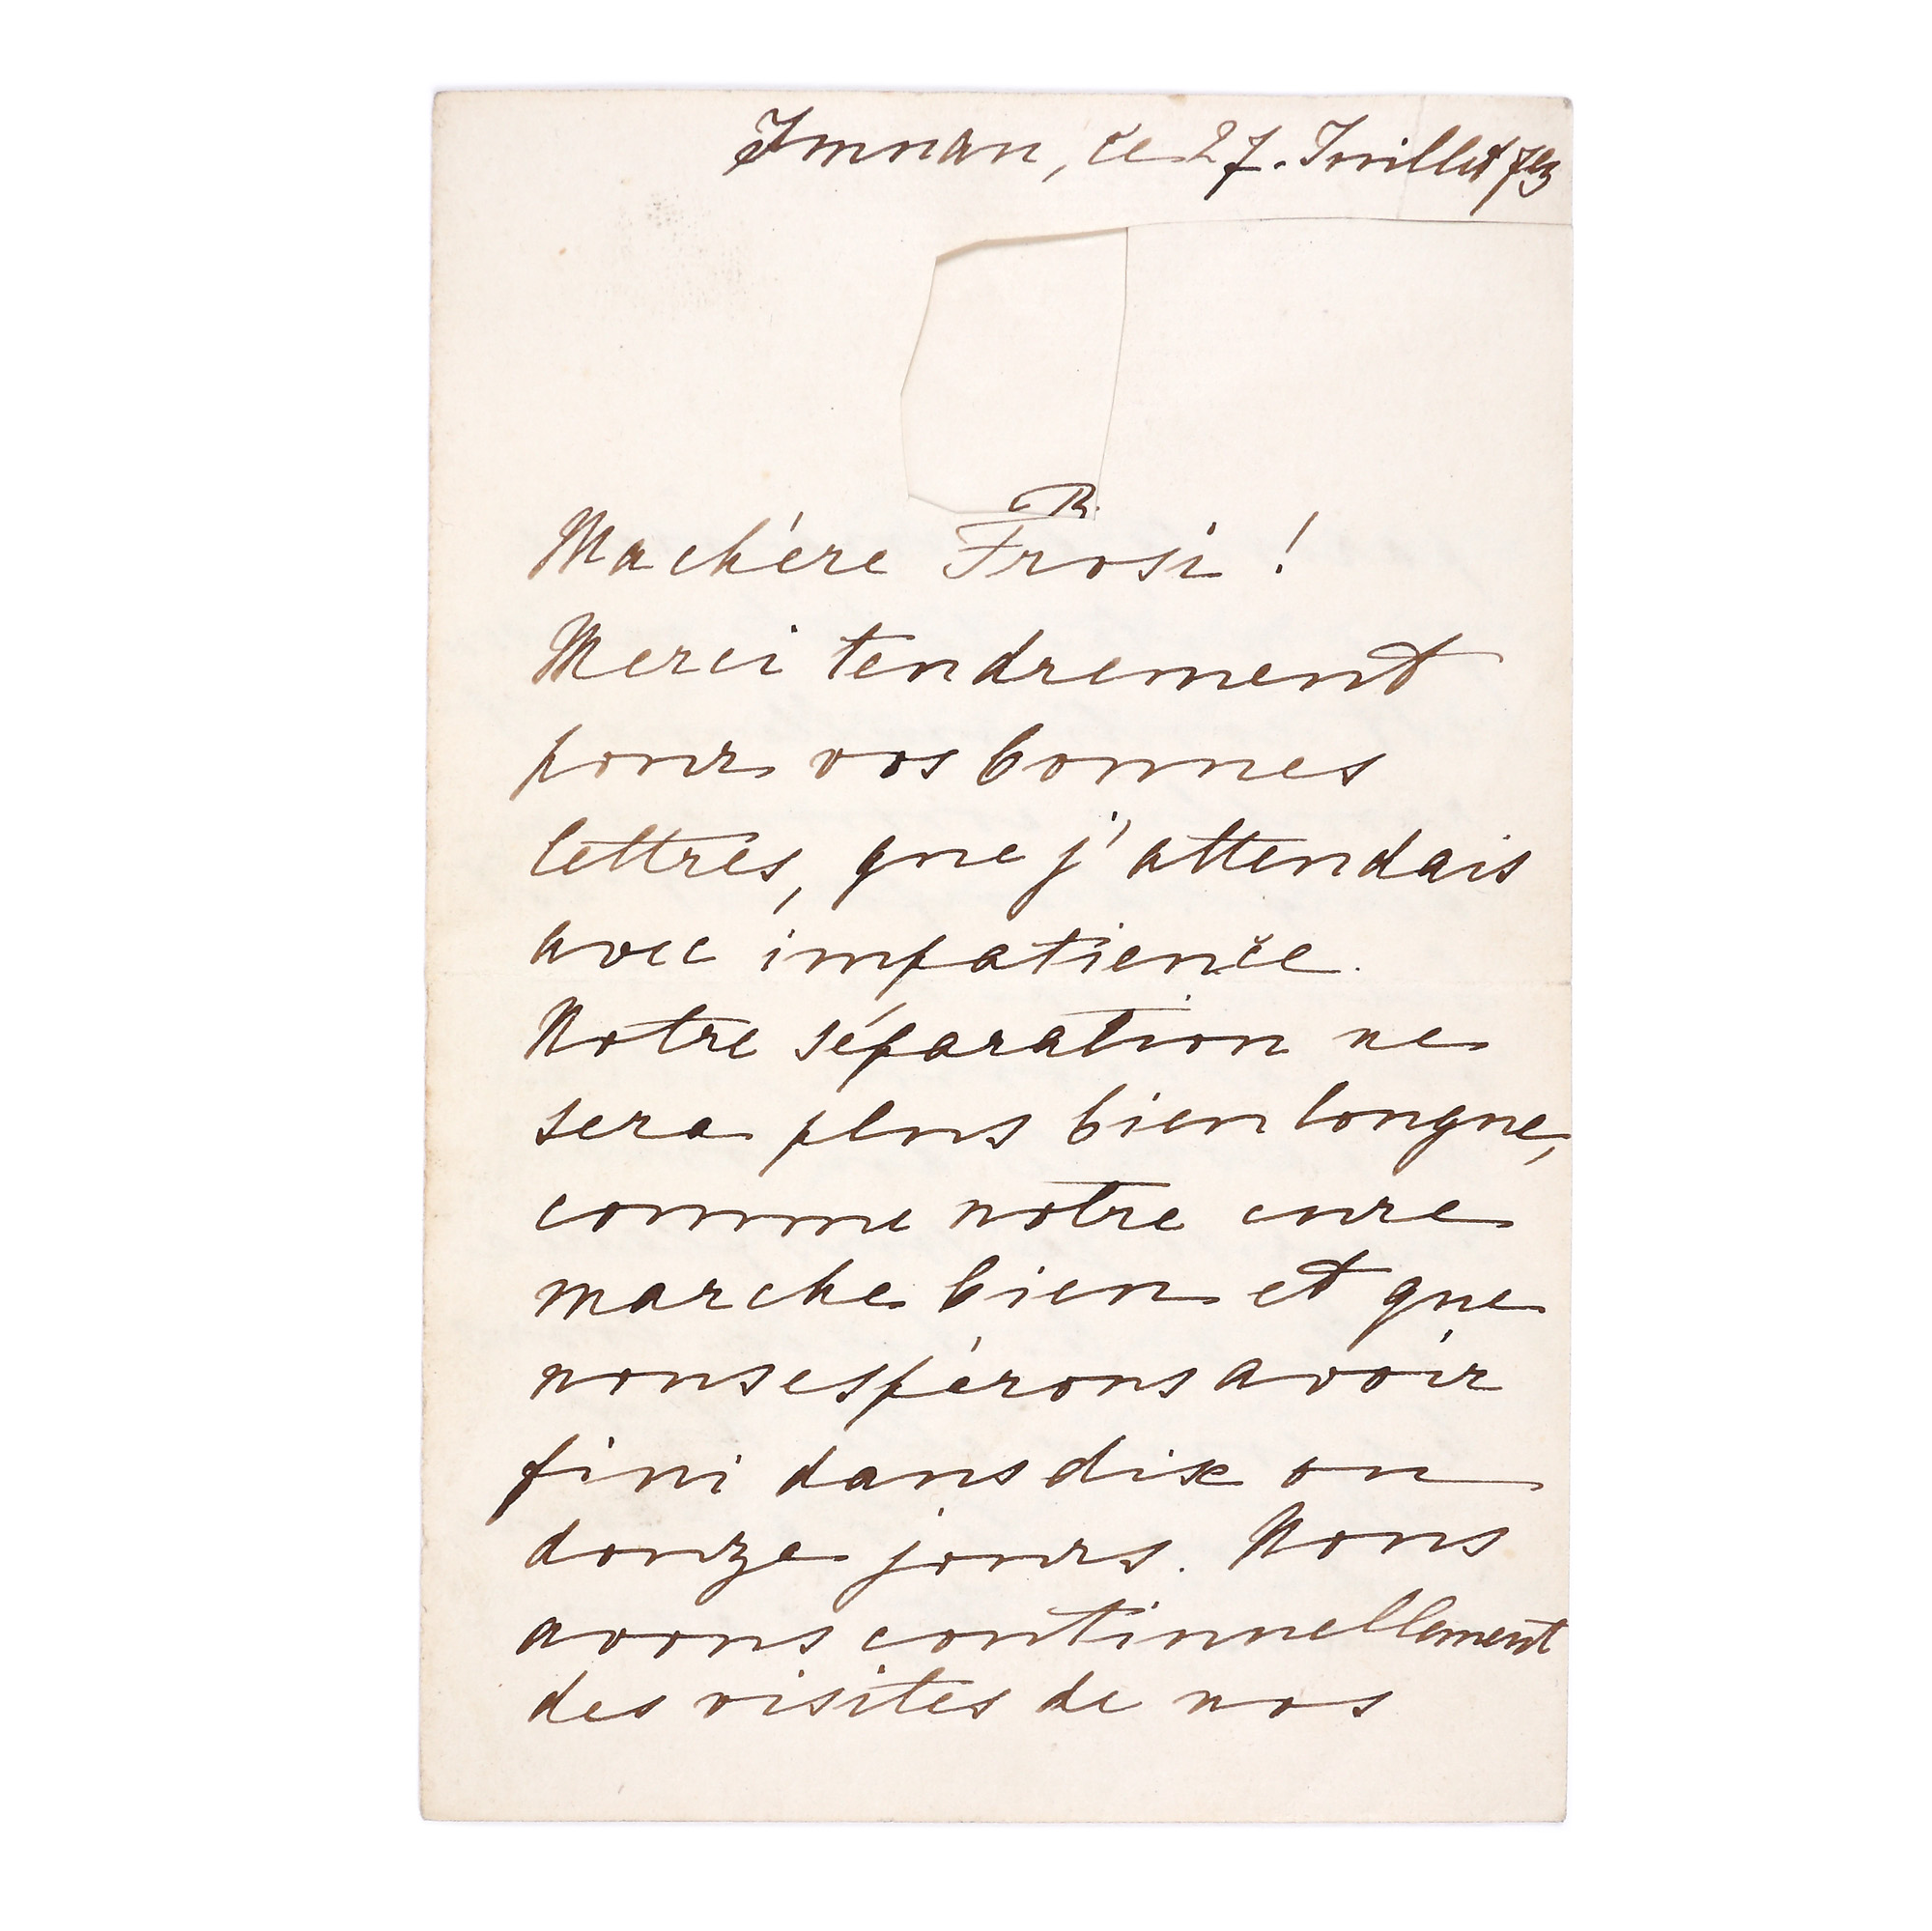 Imnan, ce 27. Juillet
B.
Ma chère Frosi !
Merci tendrement
pour vos bonnes
lettres, que j'attendais
avec impatience.
Notre séparation ne
sera plus bien longue,
comme notre cure
marche bien et que
nous espérons avoir
fini dans dix ou
douze jours. Nous
avons continuellement
des visites de nos